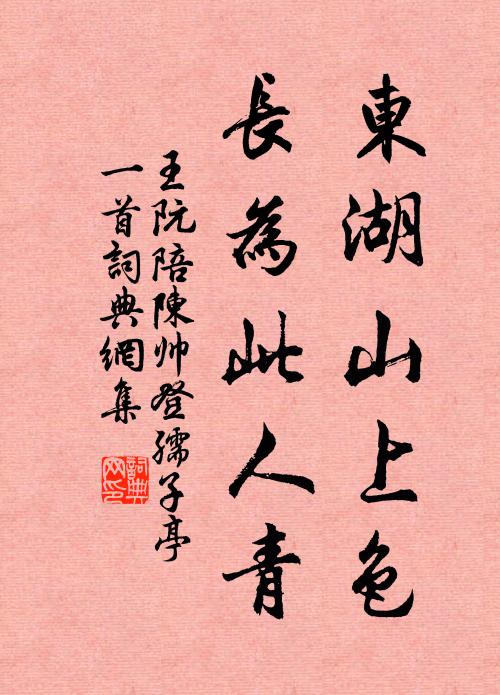 東湖山上色
長為此人青
王阮陪陳帅登孺子亭
一首詞典網集
詞典
网印